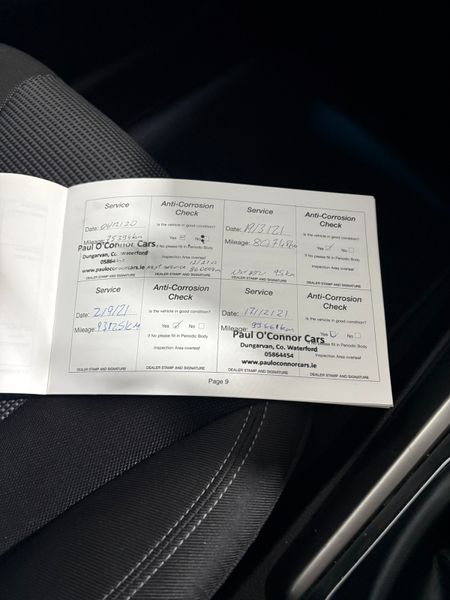 Service
Anti-Corrosion
Check
Date:
Is the vehicle in good condition?
Mileage:
Yes No
If No please fill in Periodic Body
Inspection Area overleaf
Paul O'Connor Cars
Dungarvan, Co. Waterford
www.pauloconnorcars.ie
next service
DEALER STAMP AND SIGNATURE
DEALER STAMP AND SIGNATURE
Service
Anti-Corrosion
Check
Date:
Is the vehicle in good condition?
Mileage:
Yes No
If No please fill in Periodic Body
Inspection Area overleaf
DEALER STAMP AND SIGNATURE
DEALER STAMP AND SIGNATURE
Service
Anti-Corrosion
Check
Date: 2/9/21
Is the vehicle in good condition?
Mileage:
Yes No
If No please fill in Periodic Body
Inspection Area overleaf
DEALER STAMP AND SIGNATURE
DEALER STAMP AND SIGNATURE
Service
Anti-Corrosion
Check
Date:
Is the vehicle in good condition?
Mileage:
Yes No
please fill in Periodic Body
Inspection Area overleaf
Paul O'Connor Cars
Dungarvan, Co. Waterford
05864454
www.pauloconnorcars.ie
DEALER STAMP AND SIGNATURE
DEALER STAMP AND SIGNATURE
Page 9